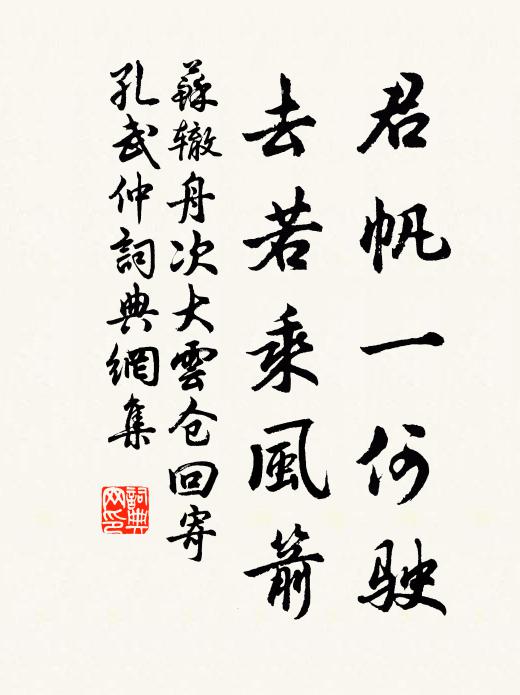 君帆一何驶
去若乘風箭
蘇辙舟次大雲仓回寄
孔武仲詞典網集
詞典网印